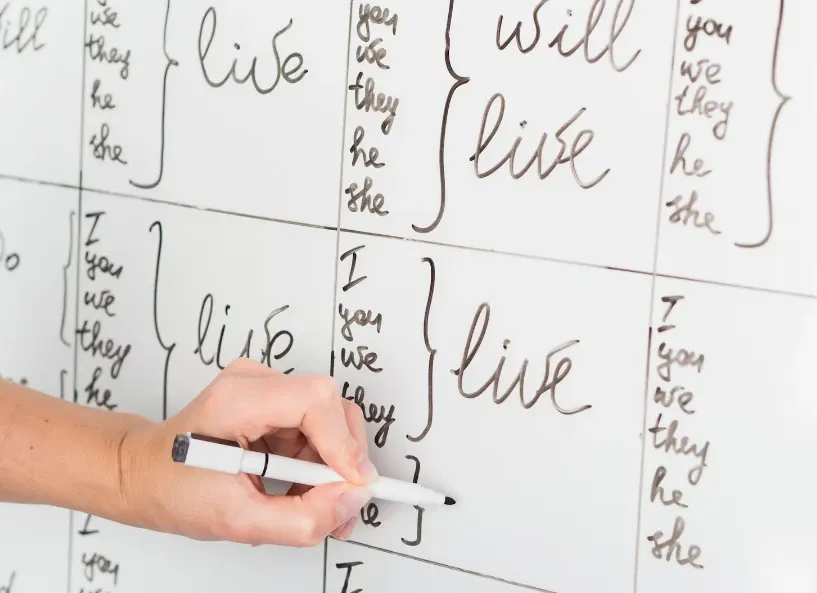 will
we
they
he
she
live
you
we
they
he
she
will
live
you
we
they
he
she
I
you
we
they
he
live
I
you
we
they
live
I
you
we
they
he
she
I
you
we
I